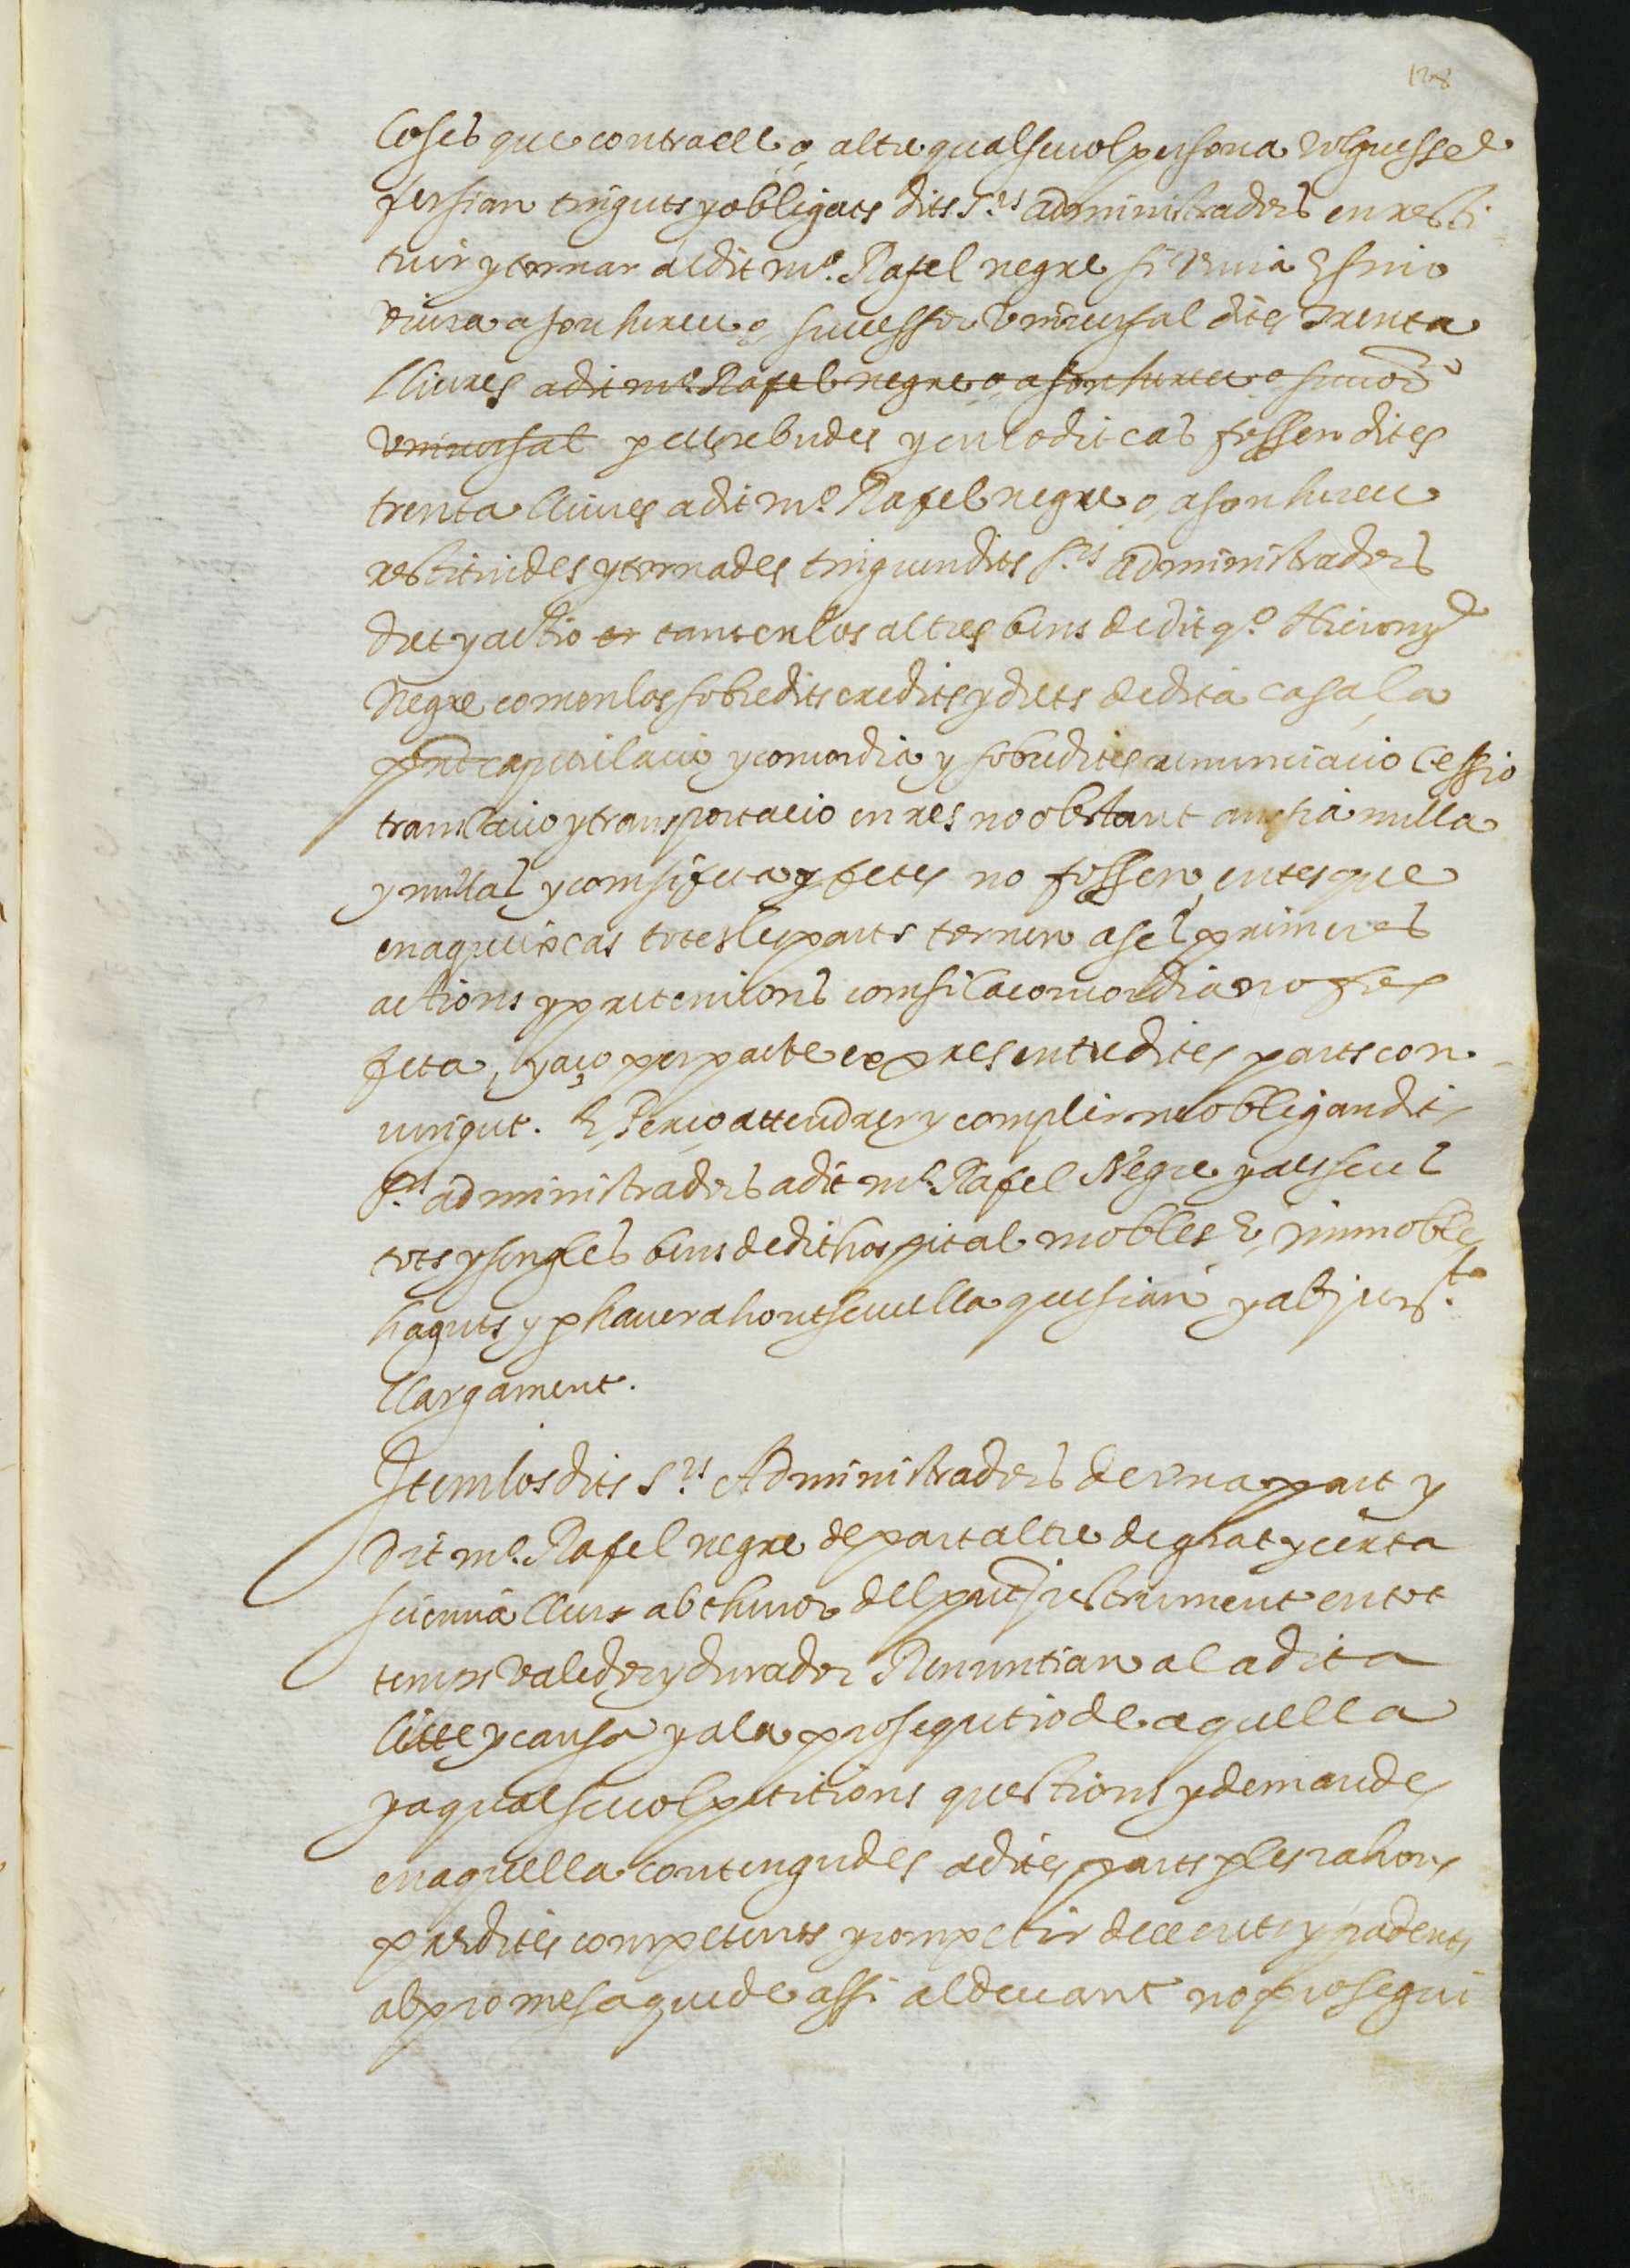 128
Coses que contra ell o, altre qualseuol persona volguessed
fer sian tinguts y obligats dits S.rs administradors en resti-
tuir y tornar al dit m.o Rafel negre si viuia E si no
viura a son hereu o, successor vniuersal dites Trenta
lliures a dit m.o Rafel negre o, a son hereu o succ.or
vniuersal p ell rebudes y en lo dit cas fossen dites
trenta lliures a dit m.o Rafel negre o, a son hereu
restituides y tornades tinguen dits S.rs administradors
dret y actio er tant en los altres bens de dit q.o Hierony.
Negre com en los sobredits credits y drets de dita casa la
pnt capitulacio y concordia y sobredites renunciacio Cessio
translacio y transportacio en res no obstant ans sia nulla
y nullas y com si feta y fetes no fossen, entes que
en aqueix cas totes les parts tornen a ses primeres
actions y pretencions com si la concordia no fos
feta, y aço per pacte expres entre dites parts con-
uingut. E Per ço attendrer y complir ne obligan dit
S.rs administradors a dit m.o Rafel Negre y als seus
tots y sengles bens de dit hospital mobles E, immobles
haguts y p hauer ahont seuulla que sian y ab jura.t
llargament.
Item los dits S.rs Administradors de vna part y
dit m.o Rafel negre de part altre de grat y certa
scientia llurs ab thenor del pnt instrument en tot
temps valedor y durador Renuntian a la dita
litte y causa y a la prosequtio de aquella
y a qualseuol petitions questions y demandes
en aquella contengudes a dites parts p les rahons
p.redites competents y competir decents y padents
ab promesa que de assi al deuant no prosegui